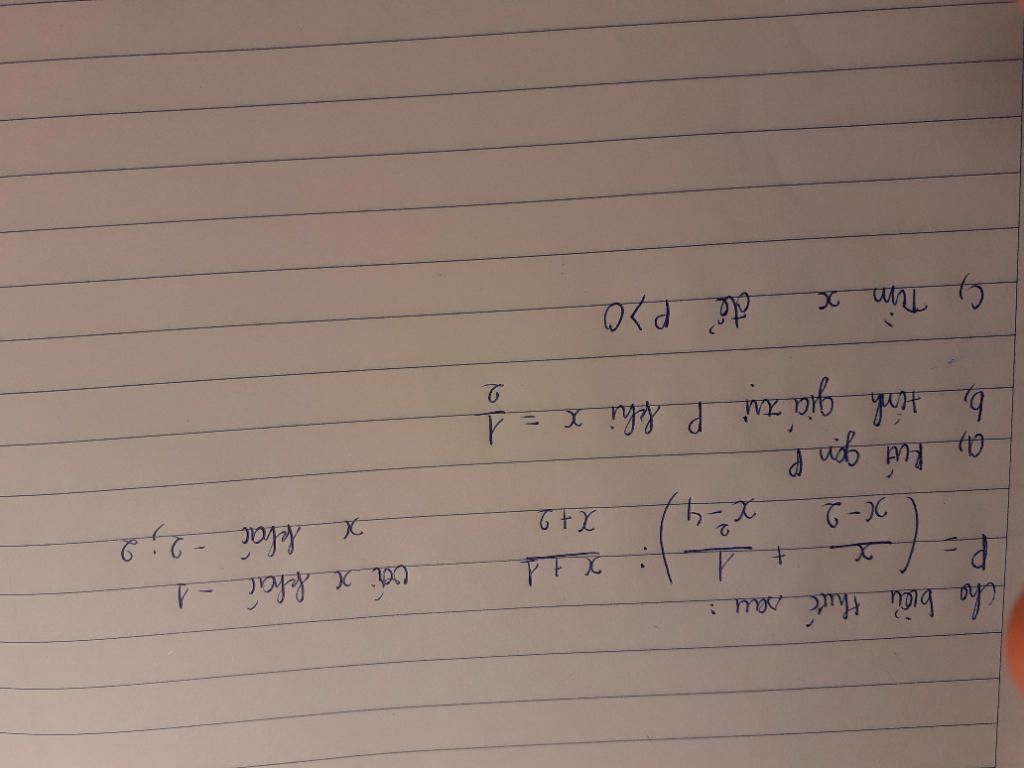 Cho biểu thức sau:
P = (x/(x-2) + 1/(x²-4)) : (x+1)/(x+2) với x khác -1
x khác -2; 2
a, Rút gọn P
b, tính giá trị P khi x = 1/2
c, Tìm x để P > 0